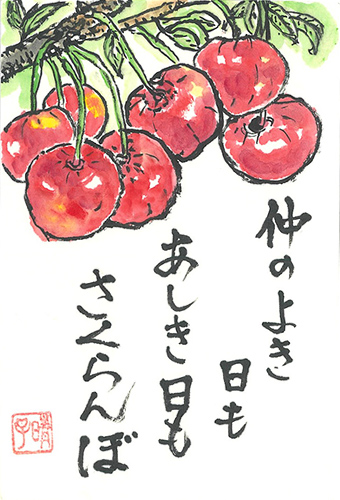 仲のよき
日も
あしき日も
さくらんぼ
晴子